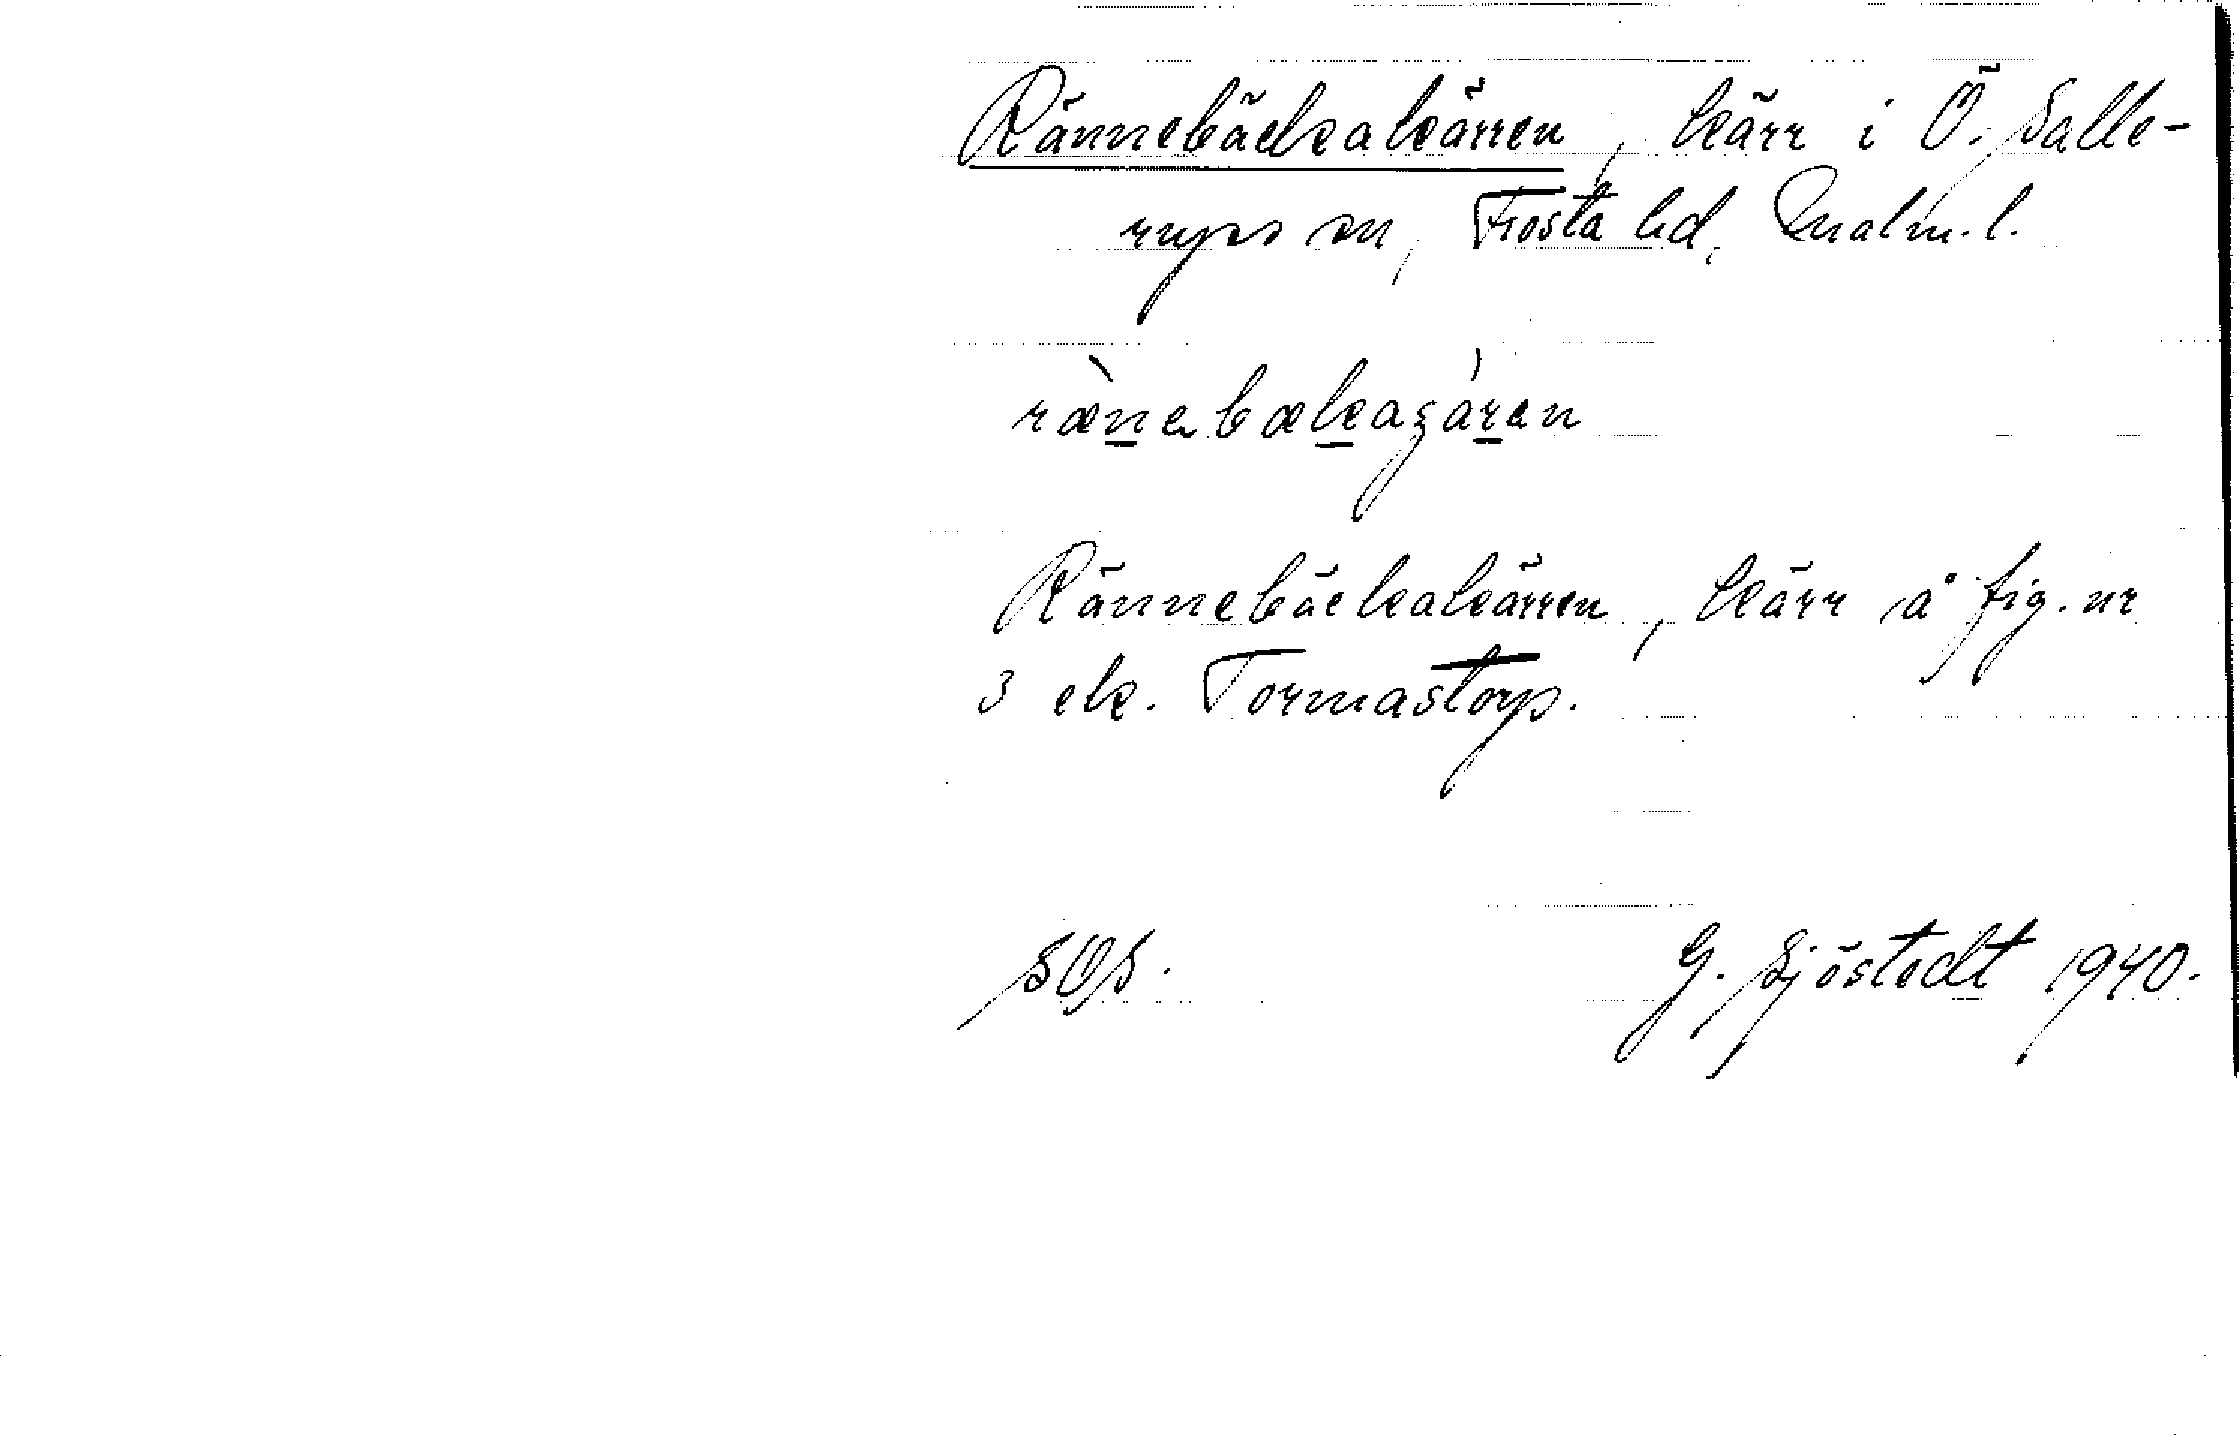 Rännebäckakärren, kärr i Ö. Salle-
rups sn, Frosta hd, Malm. l.
ræ̀nebækaʒáren
Rännebäckakärren, kärr å fig. nr
3 ek. Tormastorp.
SOS.
G. Sjöstedt 1940.